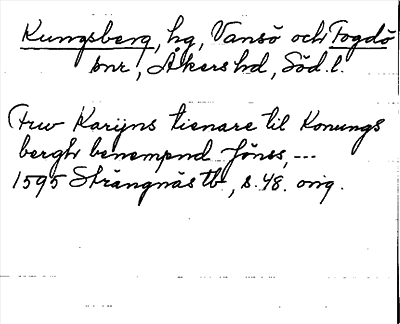 Kungsberg, hg, Vansö och Fogdö
snr, Åkers hd, Söd. l.
Frw Karijns tienare til Konungs
bergh benempnd Jönss, ---
1595 Strängnäs tb, s. 48. orig.